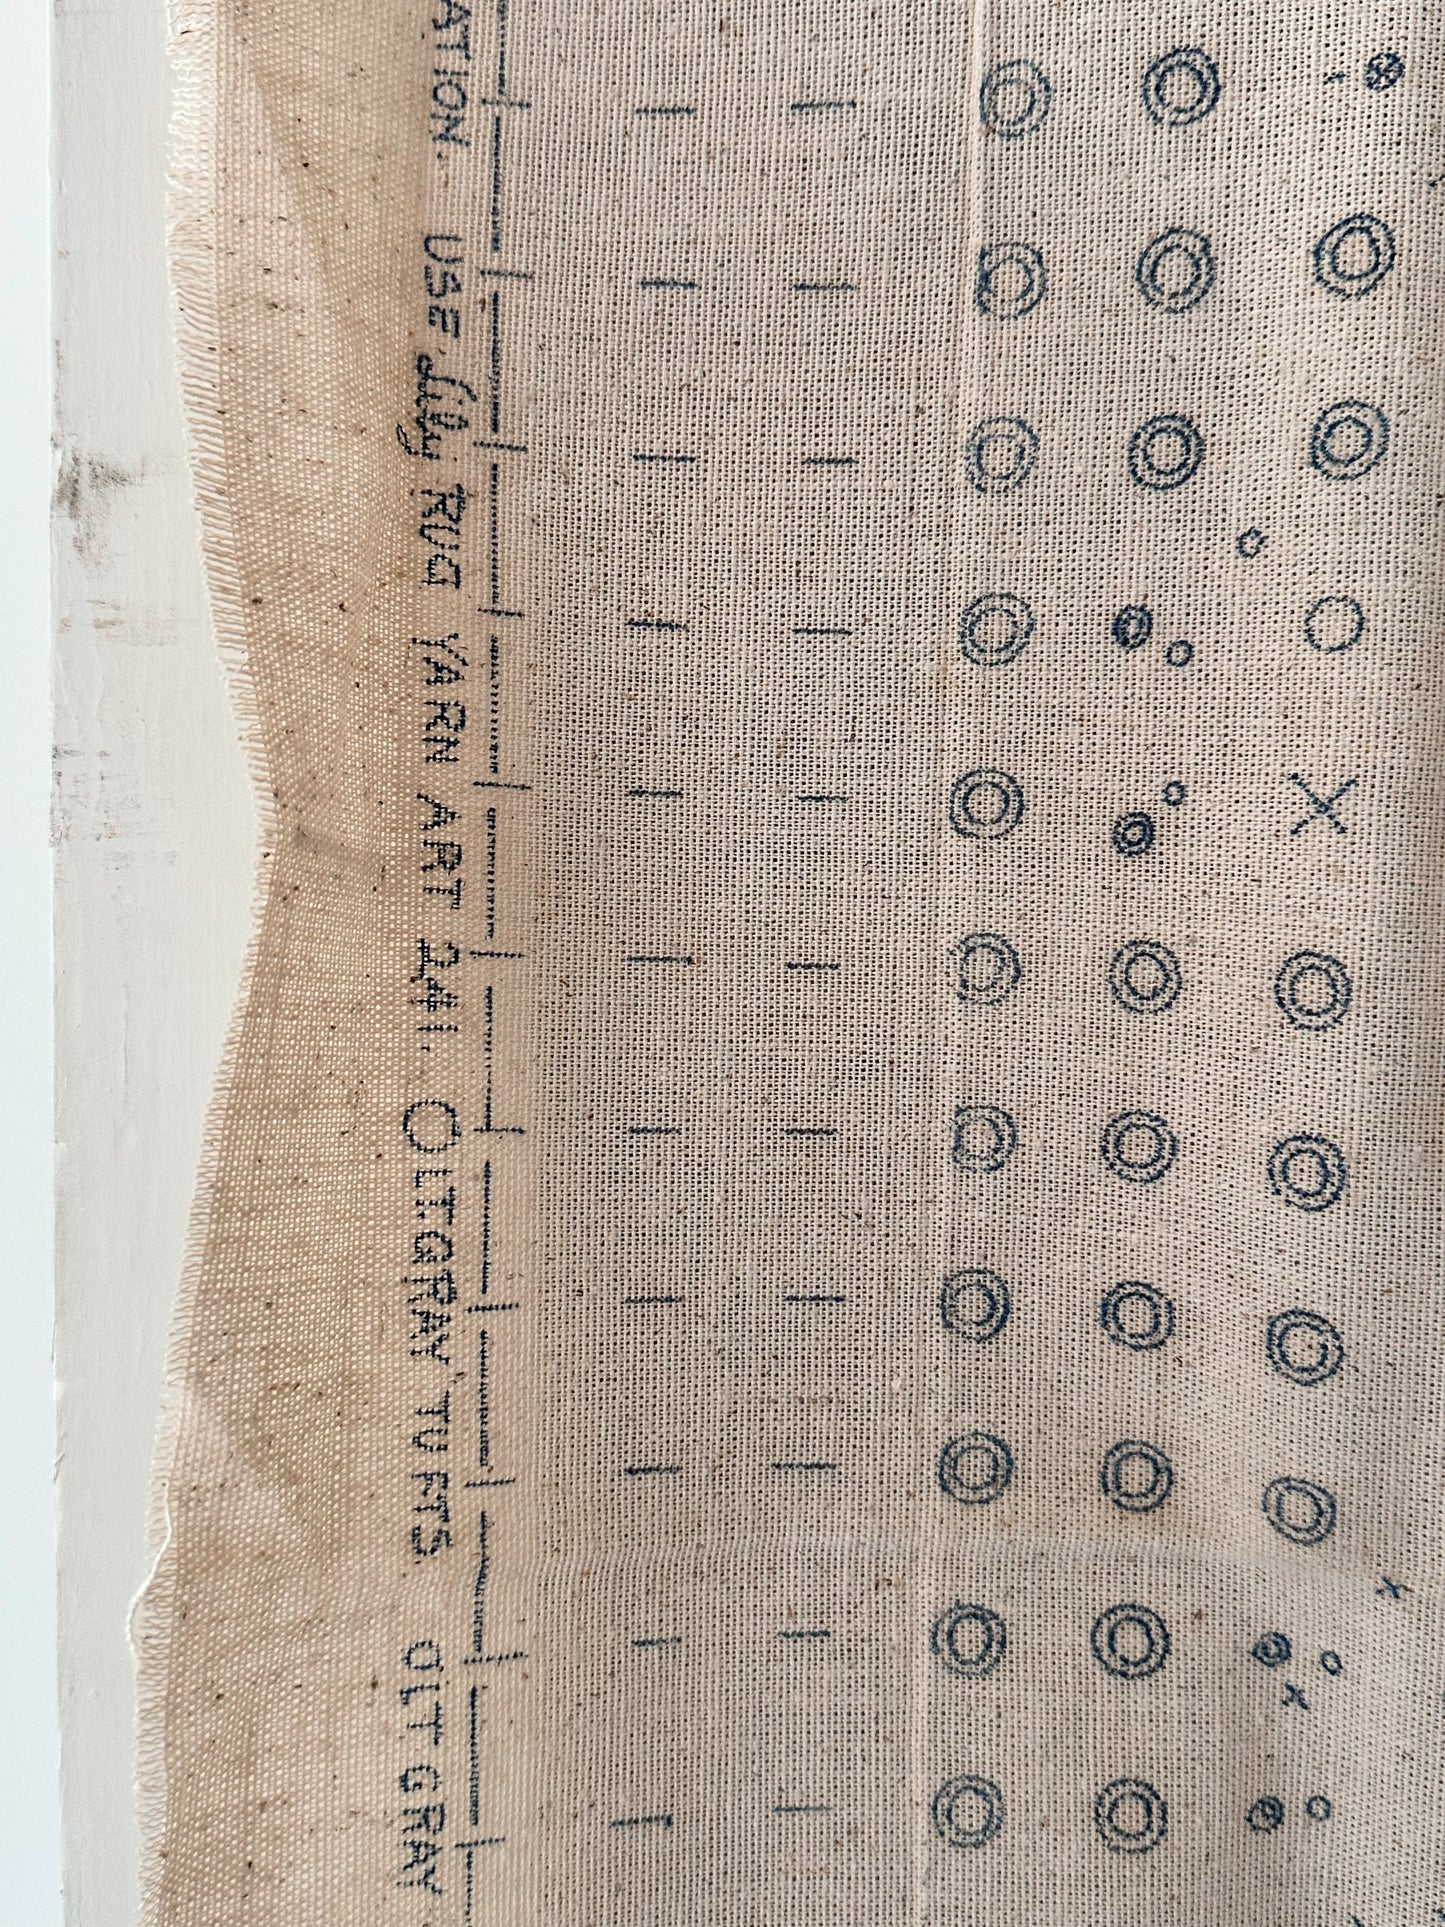 ATION. USE Lily RUG YARN ART 241. O LT.GRAY TUFTS O LT GRAY